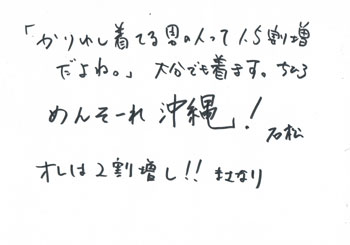 「かりゆし着てる男の人って1.5割増
だよね。」 大分でも着ます。ちひろ
めんそーれ 沖縄!
石松
オレは2割増し!! まさなり